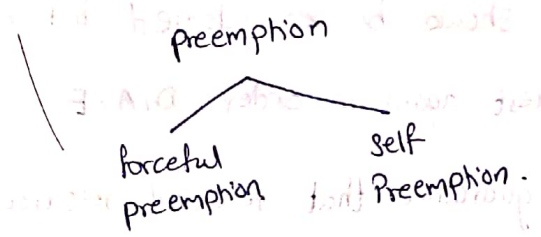 preemption
forceful
preemption
self
Preemption.